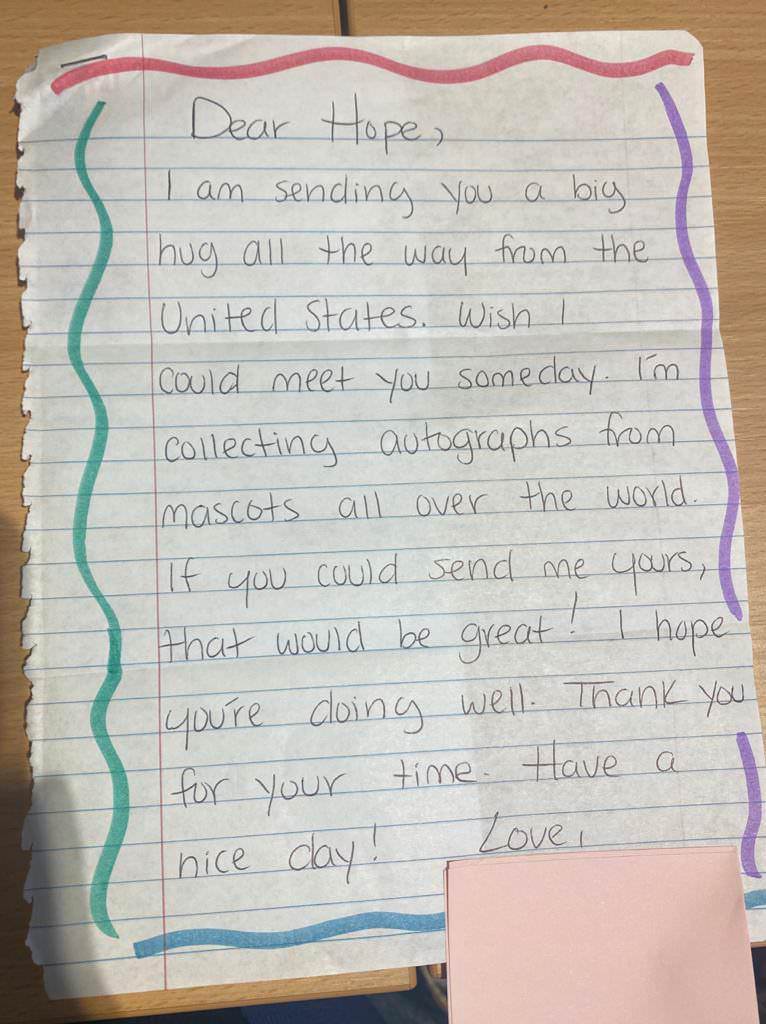 Dear Hope,
I am sending you a big
hug all the way from the
United States. Wish I
could meet you someday. I'm
collecting autographs from
mascots all over the world.
If you could send me yours,
that would be great! I hope
you're doing well. Thank you
for your time. Have a
nice day! Love,